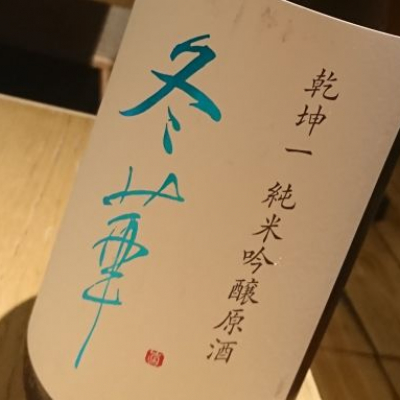 乾坤一 純米吟醸原酒
冬華